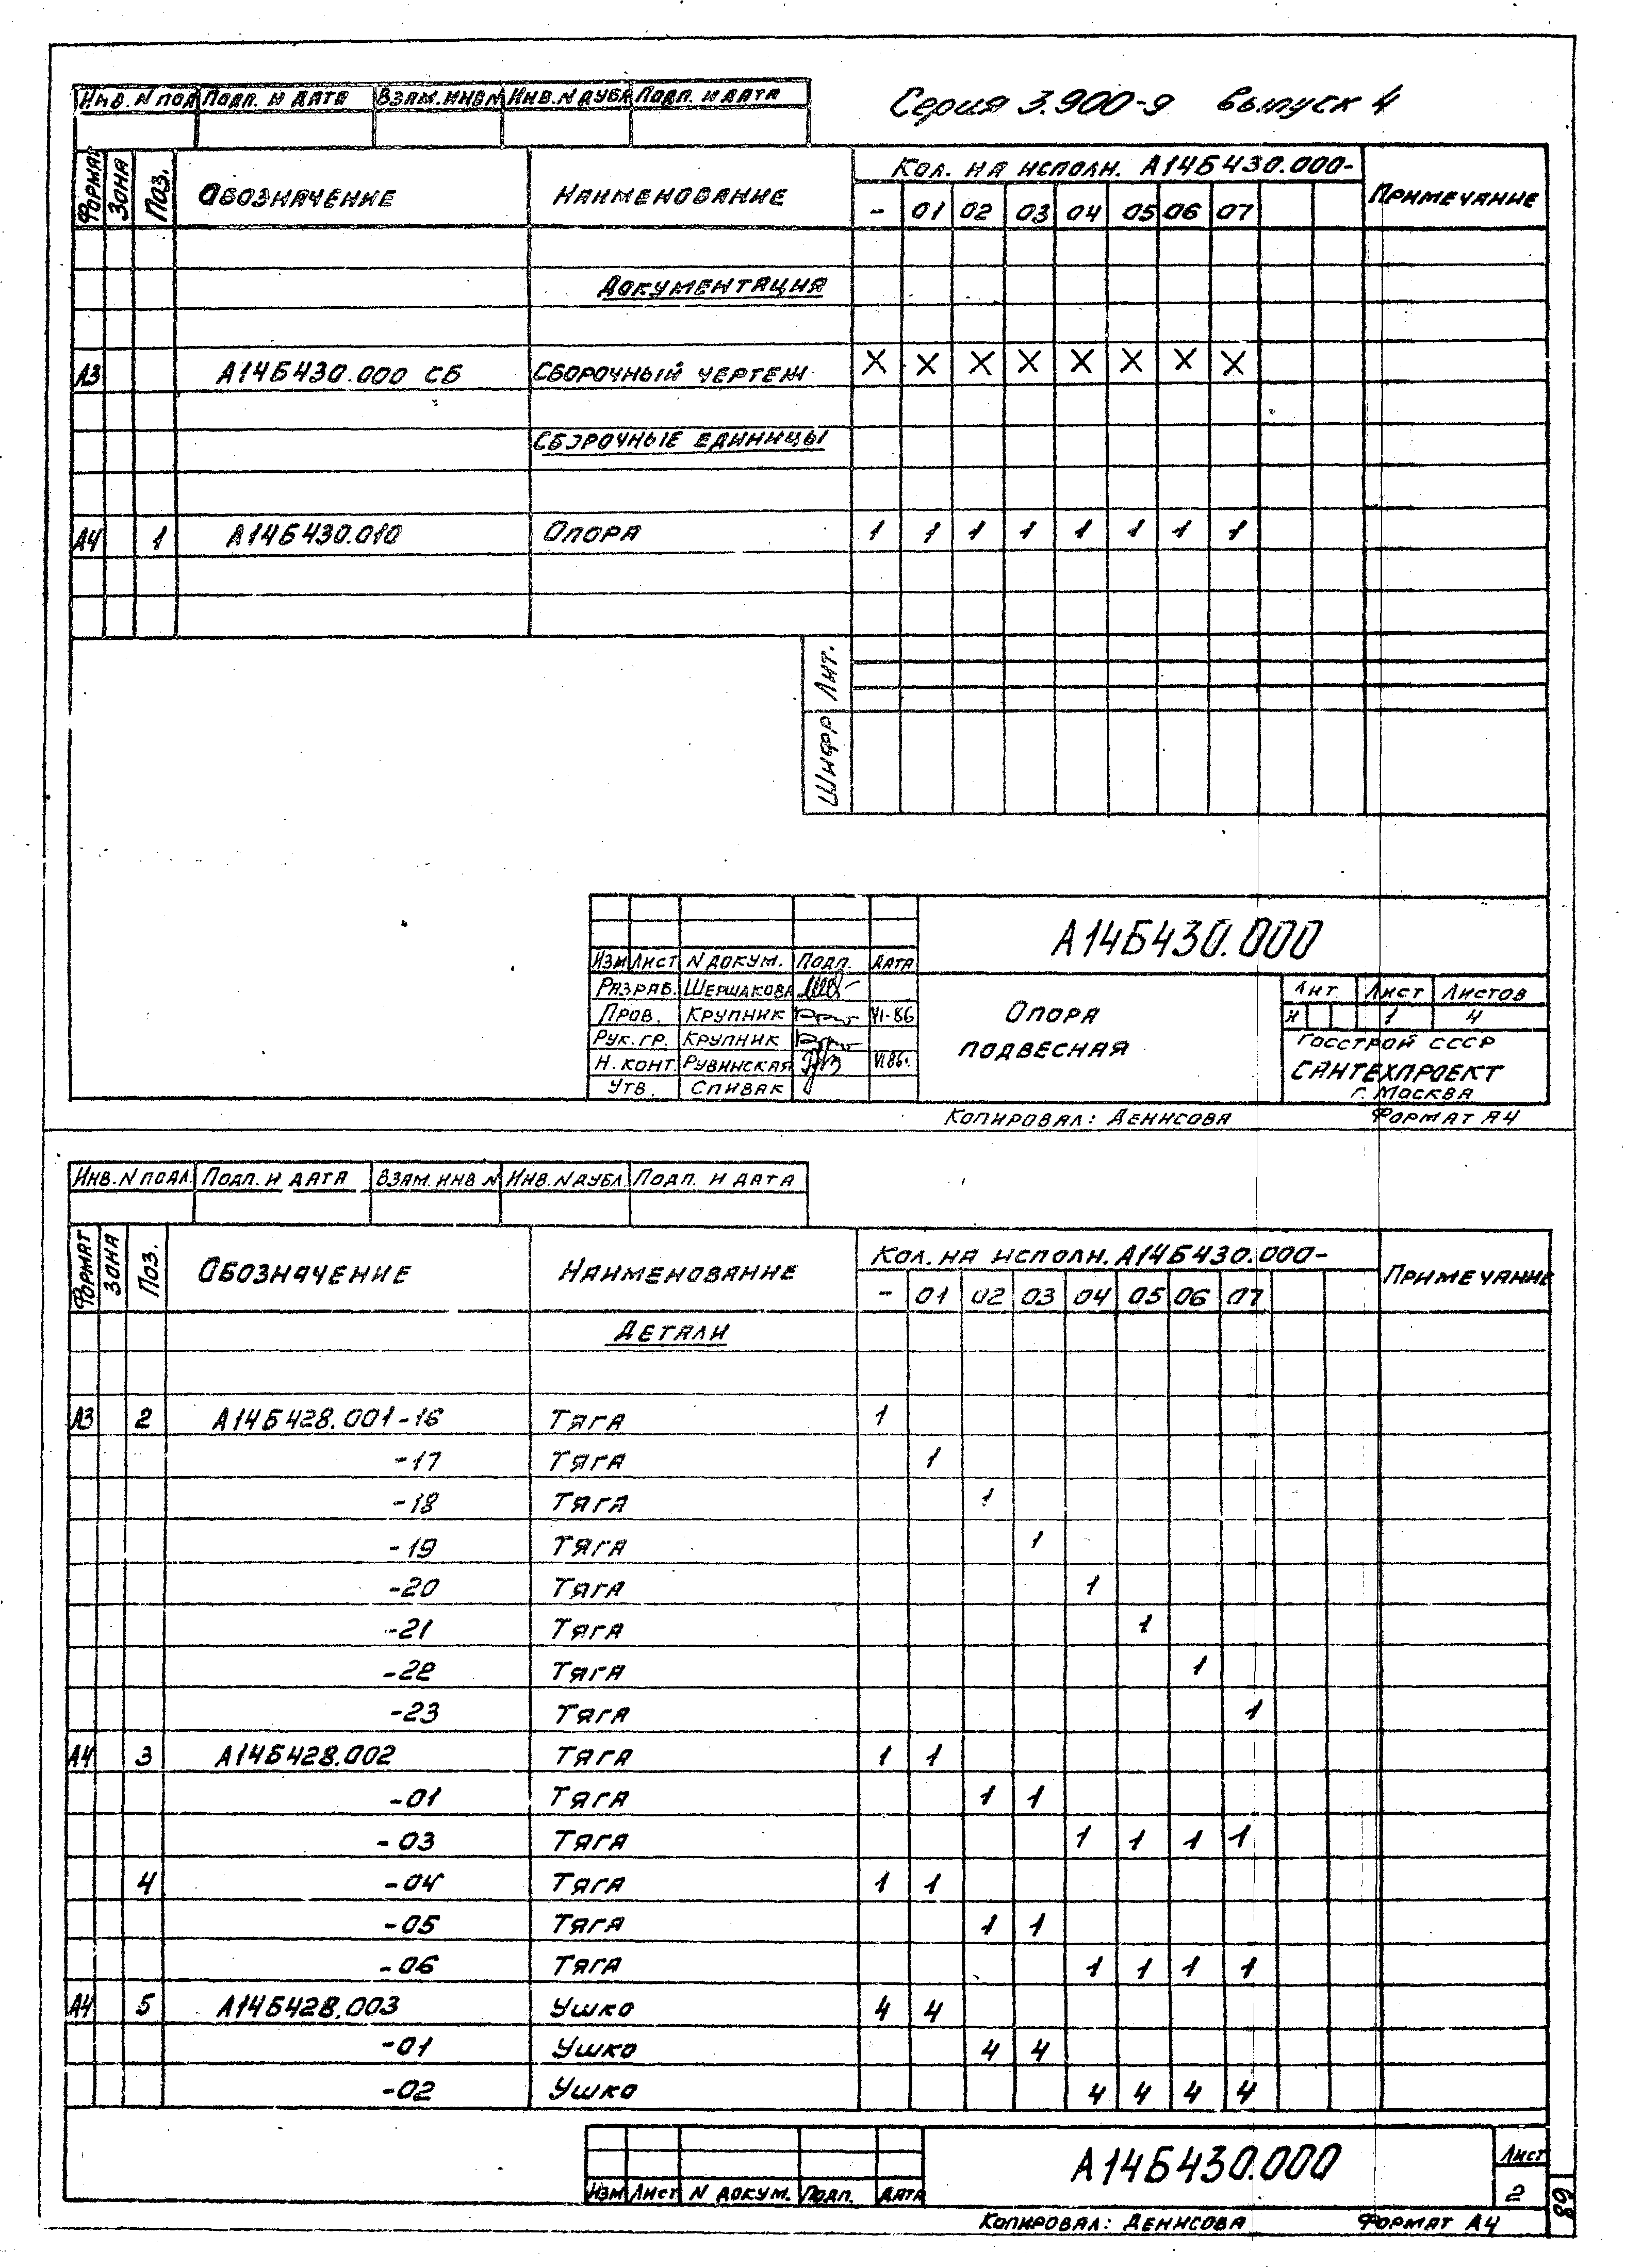 Серия 3.900-9 выпуск 4
Инв. N под Подп. и дата Взам. инв N Инв. N дубл Подп. и дата
Формат Зона Поз. Обозначение Наименование Кол. на исполн. А14Б430.000- Примечание
- 01 02 03 04 05 06 07
Документация
А3 А14Б430.000 СБ Сборочный чертеж X X X X X X X X
Сборочные единицы
А4 1 А14Б430.010 Опора 1 1 1 1 1 1 1 1
Лит.
Шифр
А14Б430.000
Изм Лист N докум. Подп. Дата
Разраб. Шершакова
Пров. Крупник VI-86
Рук. гр. Крупник
Н. конт Рувинская VI 86.
Утв. Спивак
Опора
подвесная
Лит Лист Листов
И 1 4
Госстрой СССР
Сантехпроект
г. Москва
Копировал: Денисова Формат А4
Инв. N подл. Подп. и дата Взам. инв N Инв. N дубл Подп. и дата
Формат Зона Поз. Обозначение Наименование Кол. на исполн. А14Б430.000- Примечание
- 01 02 03 04 05 06 07
Детали
А3 2 А14Б428.001-16 Тяга 1
-17 Тяга 1
-18 Тяга 1
-19 Тяга 1
-20 Тяга 1
-21 Тяга 1
-22 Тяга 1
-23 Тяга 1
А4 3 А14Б428.002 Тяга 1 1
-01 Тяга 1 1
-03 Тяга 1 1 1 1
4 -04 Тяга 1 1
-05 Тяга 1 1
-06 Тяга 1 1 1 1
А4 5 А14Б428.003 Ушко 4 4
-01 Ушко 4 4
-02 Ушко 4 4 4 4
А14Б430.000
Лист
2
Изм Лист N докум. Подп. Дата
Копировал: Денисова Формат А4
68